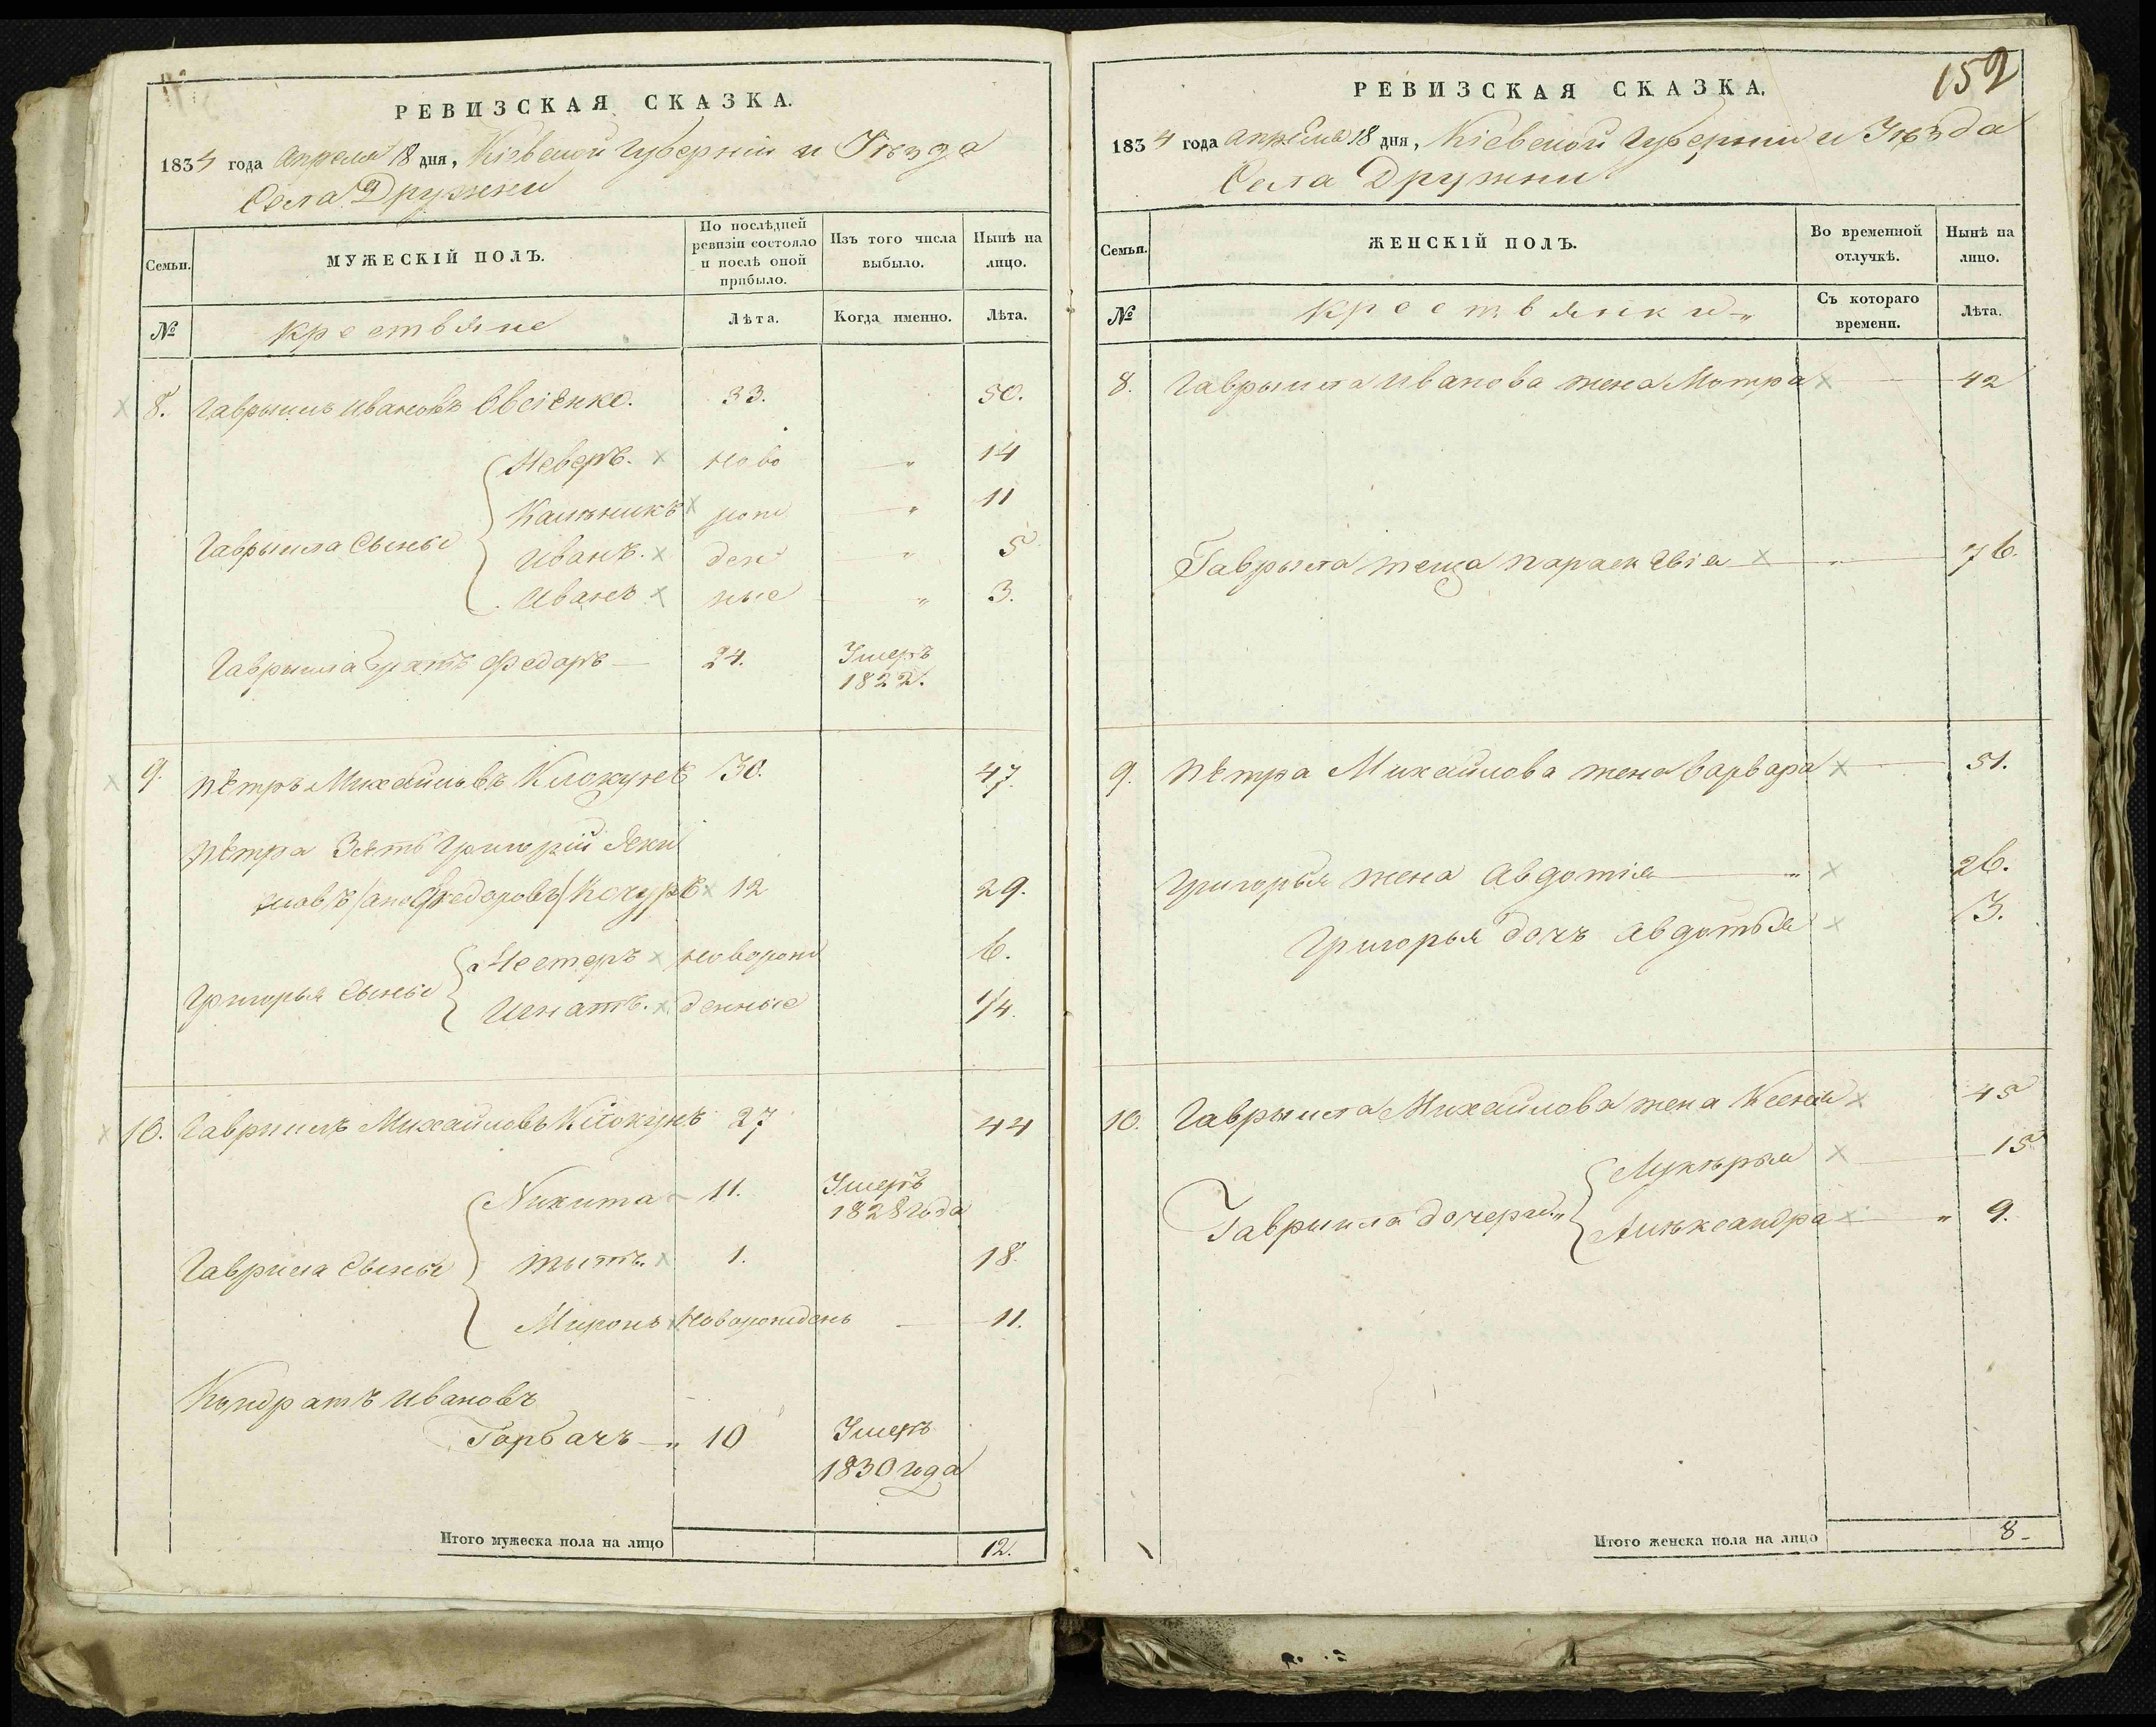 РЕВИЗСКАЯ СКАЗКА.
1834 года апреля 18 дня, Кіевской Губерніи и Уѣзда
Села Дружни
Семьи.
МУЖЕСКІЙ ПОЛЪ.
По послѣдней ревизіи состояло и послѣ оной прибыло.
Изъ того числа выбыло.
Нынѣ на лицо.
№
крестьяне
Лѣта.
Когда именно.
Лѣта.
8. Гаврыилъ Ивановъ Овсіенко. 33. 50.
Неверъ. ново " 14
рож " 11
Гаврыила Сыны
Иванъ. ден " 5
Иванъ ные " 3.
Гаврыила братъ Федоръ — 24. Умеръ
1822.
9. Пѣтръ Михайловъ Клокунъ 30. 47.
Пѣтра Зять Григорій Яки
мовъ /апо Федоровъ/ 12 29.
Нестеръ новорож 6.
Григорья Сыны
Игнатъ. денные 1/4.
10. Гавриилъ Михайловъ Клокунъ 27 44
Никита — 11. Умеръ
1828 года
Гаврила Сыны
Тытъ. 1. 18.
Миронъ Новорожденъ — 11.
Кындратъ Ивановъ
Горбачъ — " 10 Умеръ
1830 года
Итого мужеска пола на лицо 12.
152
РЕВИЗСКАЯ СКАЗКА.
1834 года апреля 18 дня, Кіевской Губерніи и Уѣзда
Села Дружни
Семьи.
ЖЕНСКІЙ ПОЛЪ.
Во временной отлучкѣ.
Нынѣ на лицо.
№
крестьянки "
Съ котораго времени.
Лѣта.
8. Гаврыила Иванова жена Мотра — 42
Гаврыла теща Параскевіа — " — 76.
9. Пѣтра Михайлова жена Варвара — 51.
Григорья жена Авдотія — " 26.
Григорья дочъ Авдотья 3.
10. Гаврыила Михайлова жена Ксенія 45
Лукѣрья — 15
Гаврыила дочери "
Алѣксандра — " 9.
Итого женска пола на лицо 8 -